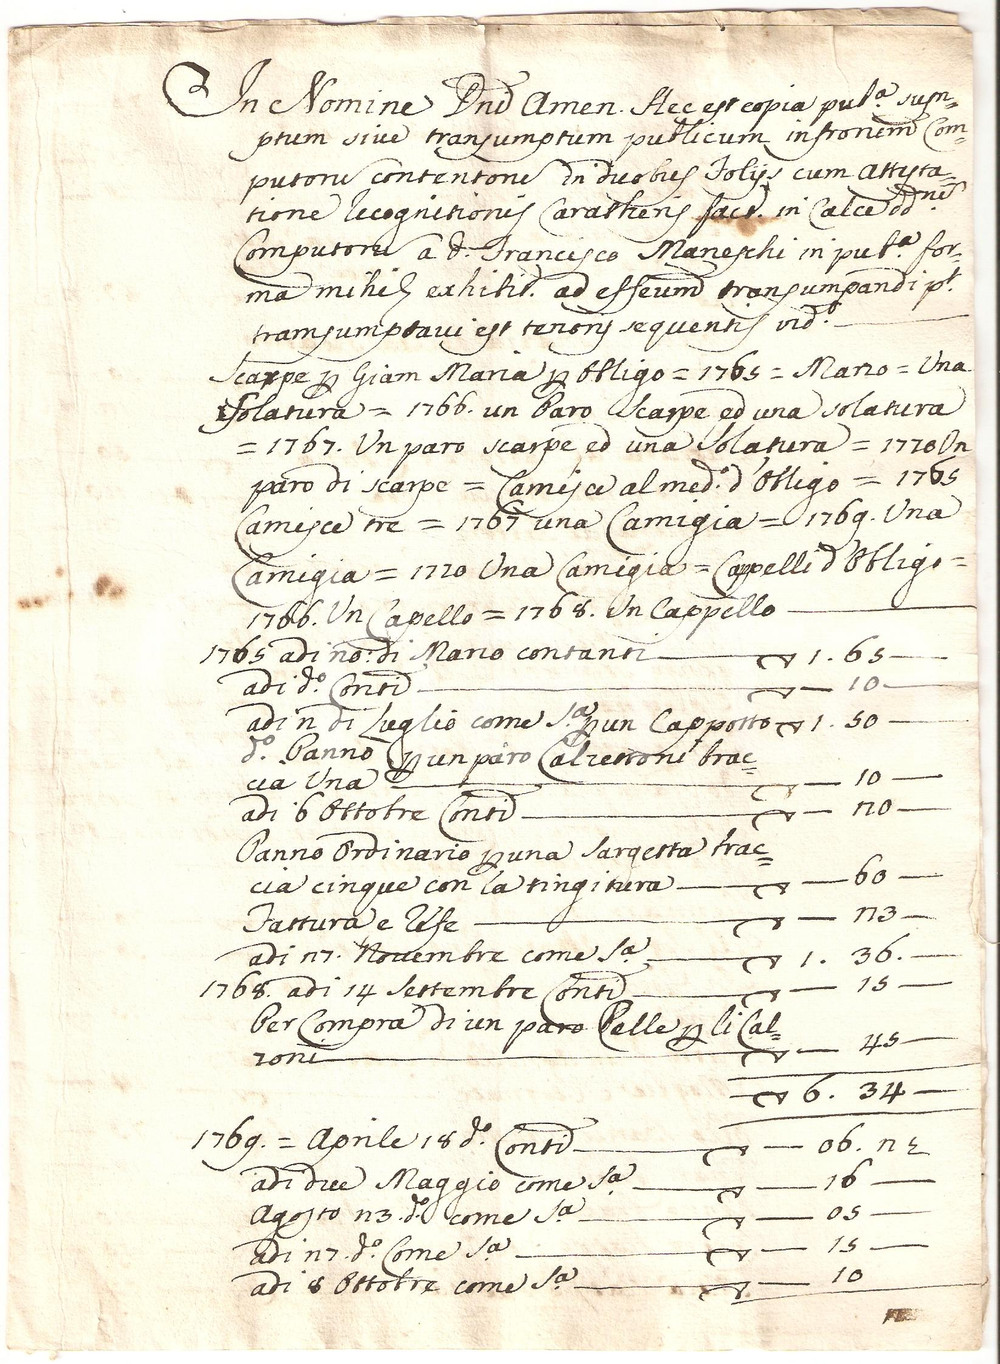 In Nomine Dnd Amen. Hec est copia pub.ª sum=
ptum sive transumptum publicum instronem Com=
putorū contentorū in duobus Folijs cum attesta=
tione recognitionis Caratheris fact. in Calce dd.nes
Computorū a d. Francisco Maneschi in pub.ª for=
ma mihi exhibit. ad effeum transumpandi pt.
transumptavi est tenoris sequentis vid.t
Scarpe p Giam Maria p obligo = 1765 = Marzo = Una
Solatura = 1766. un Paro Scarpe ed una solatura
= 1767. Un paro scarpe ed una Solatura = 1770 Un
paro di scarpe = Camisce al med.º d'obligo = 1765
Camisce tre = 1767 una Camigia = 1769. Una
Camigia = 1770 Una Camigia = Cappelli d'obligo =
1766. Un Capello = 1768. Un Cappello
1765 adi no: di Marzo contanti 1. 65
adi d.º Conti 10
adi n di Luglio come S.ª p un Cappotto 1. 50
d.º Panno p un paro Calzettoni brac=
cia Una 10
adi 6 Ottobre Conti no
Panno Ordinario p una Sargetta brac=
cia cinque con la tingitura 60
Fattura e Refe n3
adi n7. Novembre come S.ª 1. 36.
1768. adi 14 Settembre Conti 15
Per Compra di un paro Pelle p li Cal=
zoni 45
6. 34
1769. = Aprile 18 d.º Conti 06. n
adi due Maggio come S.ª 16
Agosto n3 d.º come S.ª 05
adi n7. d.º Come S.ª 15
adi 8 Ottobre come S.ª 10